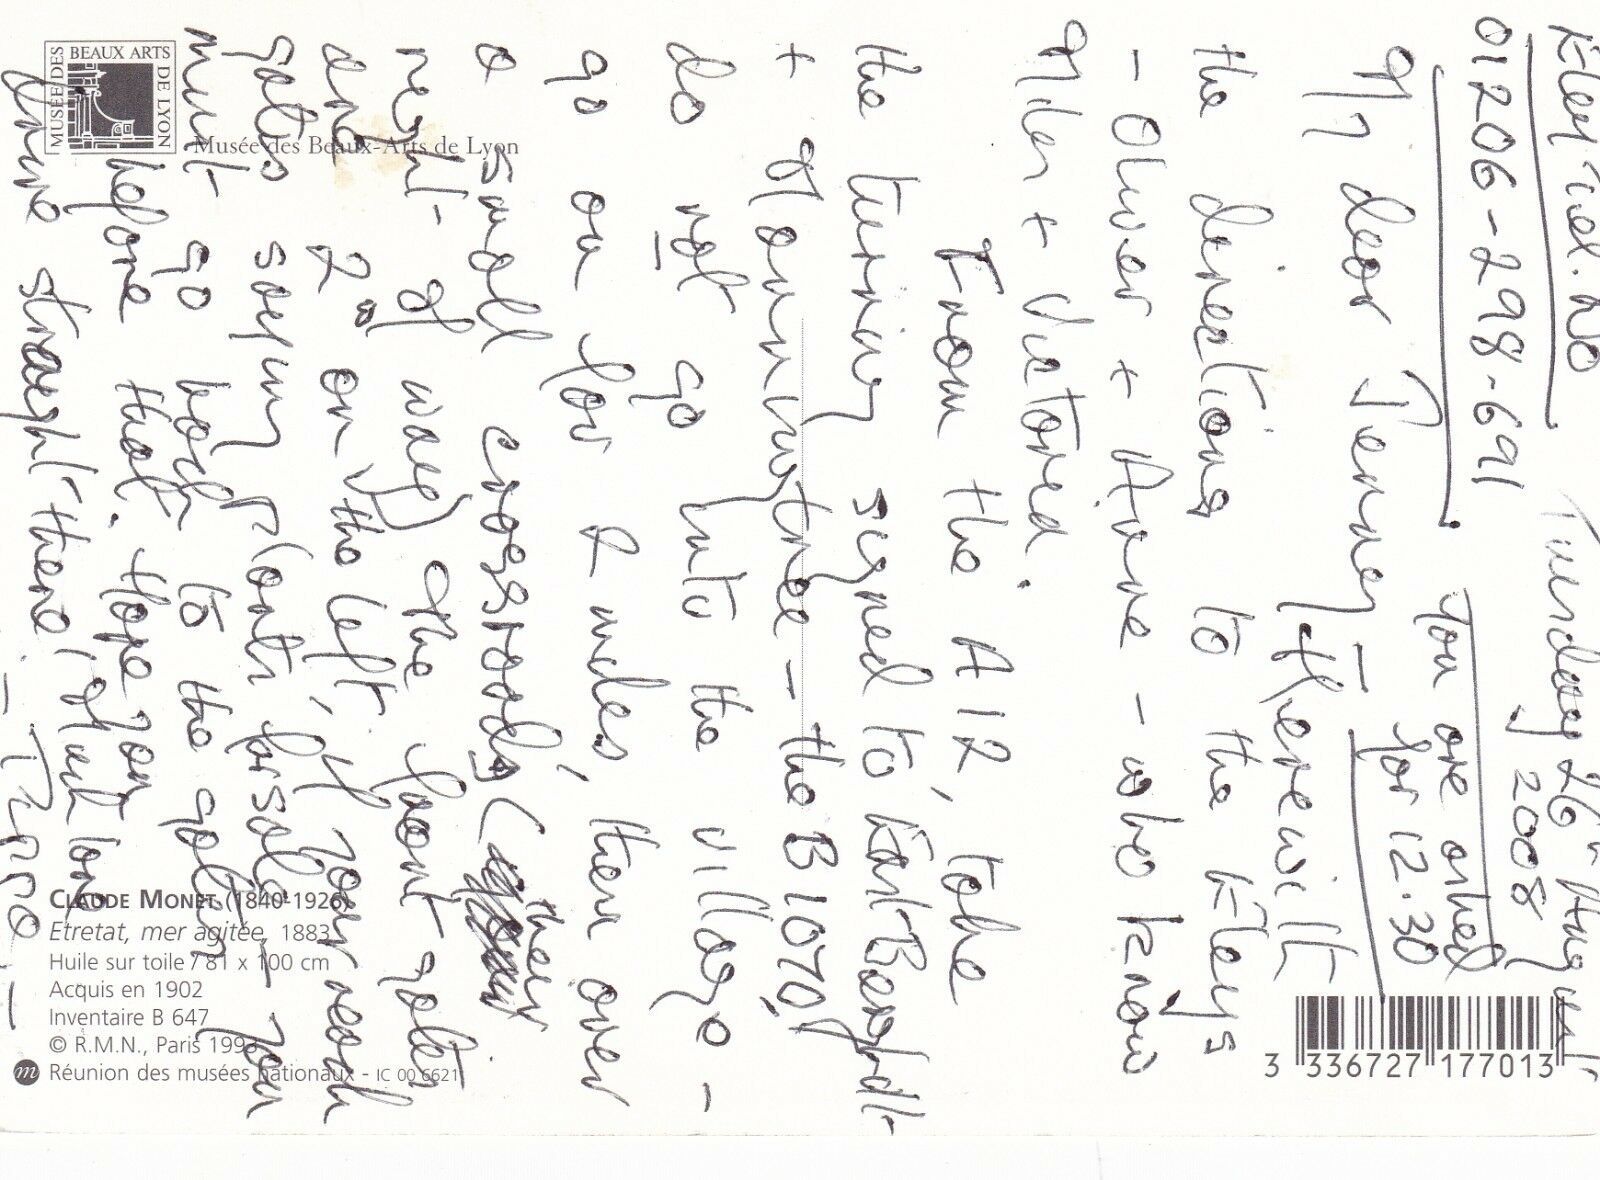 Eleys tel. no
01206-298-691
Tuesday 26th August
2008
You are asked
for 12.30
My dear Jenny —
Herewith
the directions to the Eleys
- Oliver + Anne - who know
Giles + Victored.
From the A12, take
the turning signed to East Bergholt
+ Manningtree - the B1070,
do not go into the village -
go on for 2 miles, then over
a small crossroads (they
right of way) the front gates
are 2 on the left, if you reach
gates saying plants for sale you
must go back to the gates
before that. Hope you
drive straight there, much love
MUSÉE DES BEAUX ARTS DE LYON
Musée des Beaux-Arts de Lyon
CLAUDE MONET (1840-1926)
Etretat, mer agitée, 1883
Huile sur toile / 81 x 100 cm
Acquis en 1902
Inventaire B 647
© R.M.N., Paris
m Réunion des musées nationaux - IC 00 6621
3 336727 177013